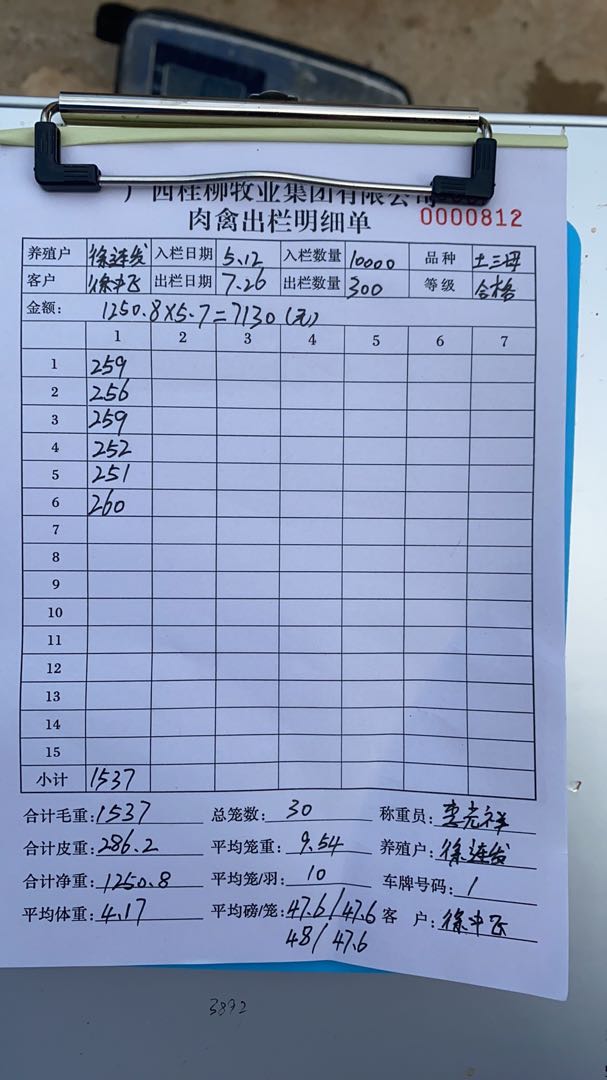 广西桂柳牧业集团有限公司
肉禽出栏明细单 0000812
养殖户 徐连发 入栏日期 5.12 入栏数量 10000 品种 土三母
客户 徐中飞 出栏日期 7.26 出栏数量 300 等级 合格
金额: 1250.8×5.7=7130(元)
1 2 3 4 5 6 7
1 259
2 256
3 259
4 252
5 251
6 260
7
8
9
10
11
12
13
14
15
小计 1537
合计毛重: 1537 总笼数: 30 称重员: 李光祥
合计皮重: 286.2 平均笼重: 9.54 养殖户: 徐连发
合计净重: 1250.8 平均笼/羽: 10 车牌号码: 1
平均体重: 4.17 平均磅/笼: 47.6/47.6 客 户: 徐中飞
48/47.6
3892